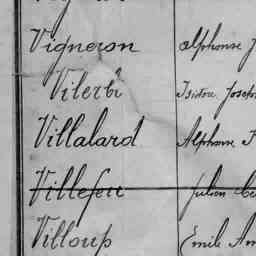 Vigneron Alphonse J
Vilerbi Isidore Joseph
Villalard Alphonse
Villefeu Julien
Villoup Emile Am